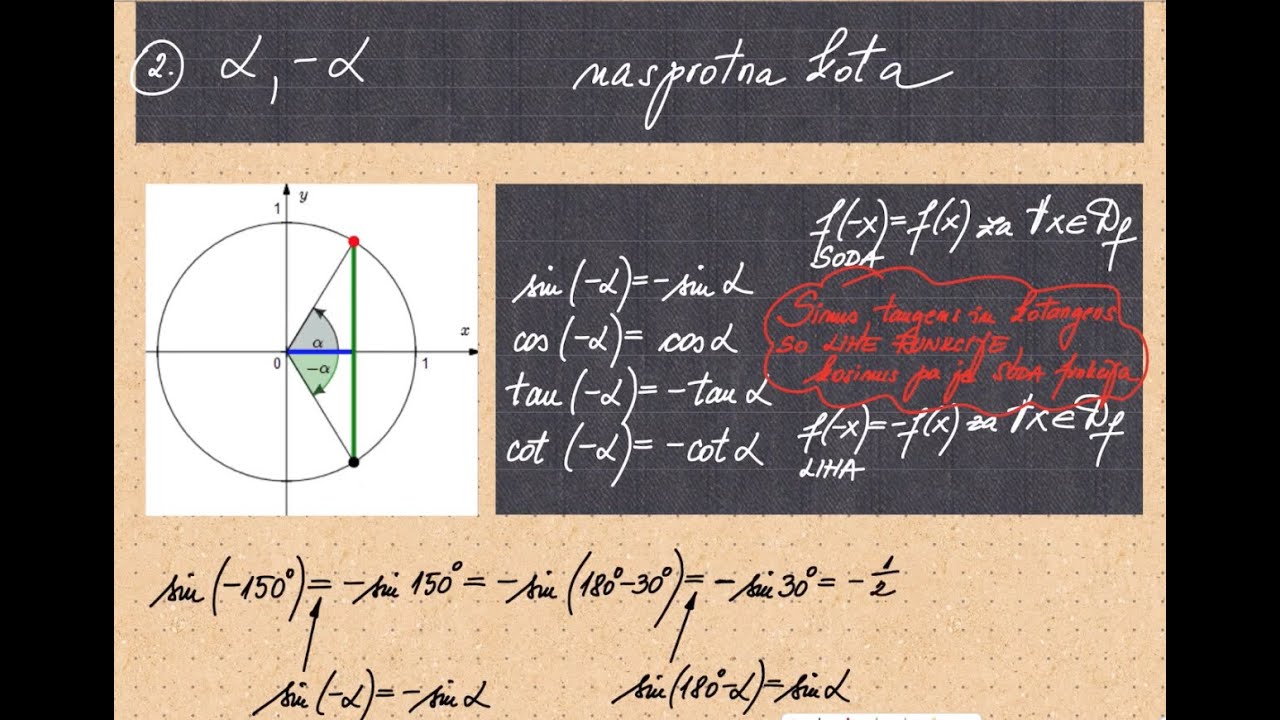 2. α, -α nasprotna kota
y
1
x
α
0
-α
1
f(-x)=f(x) za ∀x∈Df
SODA
sin(-α)=-sin α
cos(-α)= cos α
tan(-α)=-tan α
cot(-α)=-cot α
Sinus, tangens in kotangens
SO LIHE FUNKCIJE
kosinus pa je SODA funkcija
f(-x)=-f(x) za ∀x∈Df
LIHA
sin(-150°)= -sin 150°= -sin(180°-30°)= -sin 30°= -1/2
sin(-α)= -sin α
sin(180°-α)=sin α